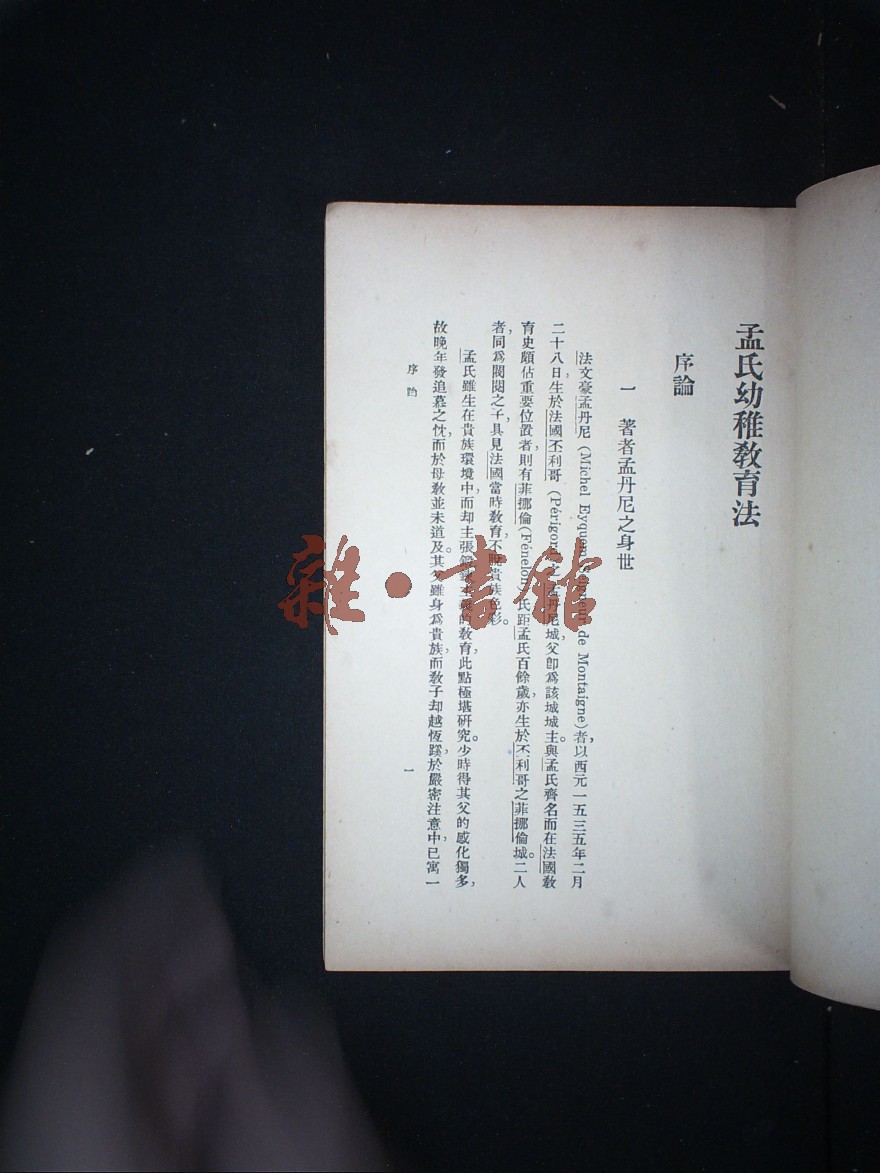 孟氏幼稚敎育法
序論
一　著者孟丹尼之身世
法文豪孟丹尼 (Michel Eyquem de Montaigne)者，以西元一五三五年二月
二十八日，生於法國不利哥 (Périgord)孟丹尼城，父卽爲該城城主。與孟氏齊名而在法國敎
育史頗佔重要位置者，則有菲挪倫(Fénelon)氏距孟氏百餘歲，亦生於不利哥之菲挪倫城。二人
者，同爲閥閱之子，具見法國當時敎育，不脫貴族色彩。
孟氏雖生在貴族環境中，而却主張的敎育，此點極堪硏究。少時得其父的感化獨多，
故晚年發追慕之忱，而於母敎並未道及。其父雖身爲貴族，而敎子却越恆蹊，於嚴密注意中，已寓一
序論
一
雜·書館